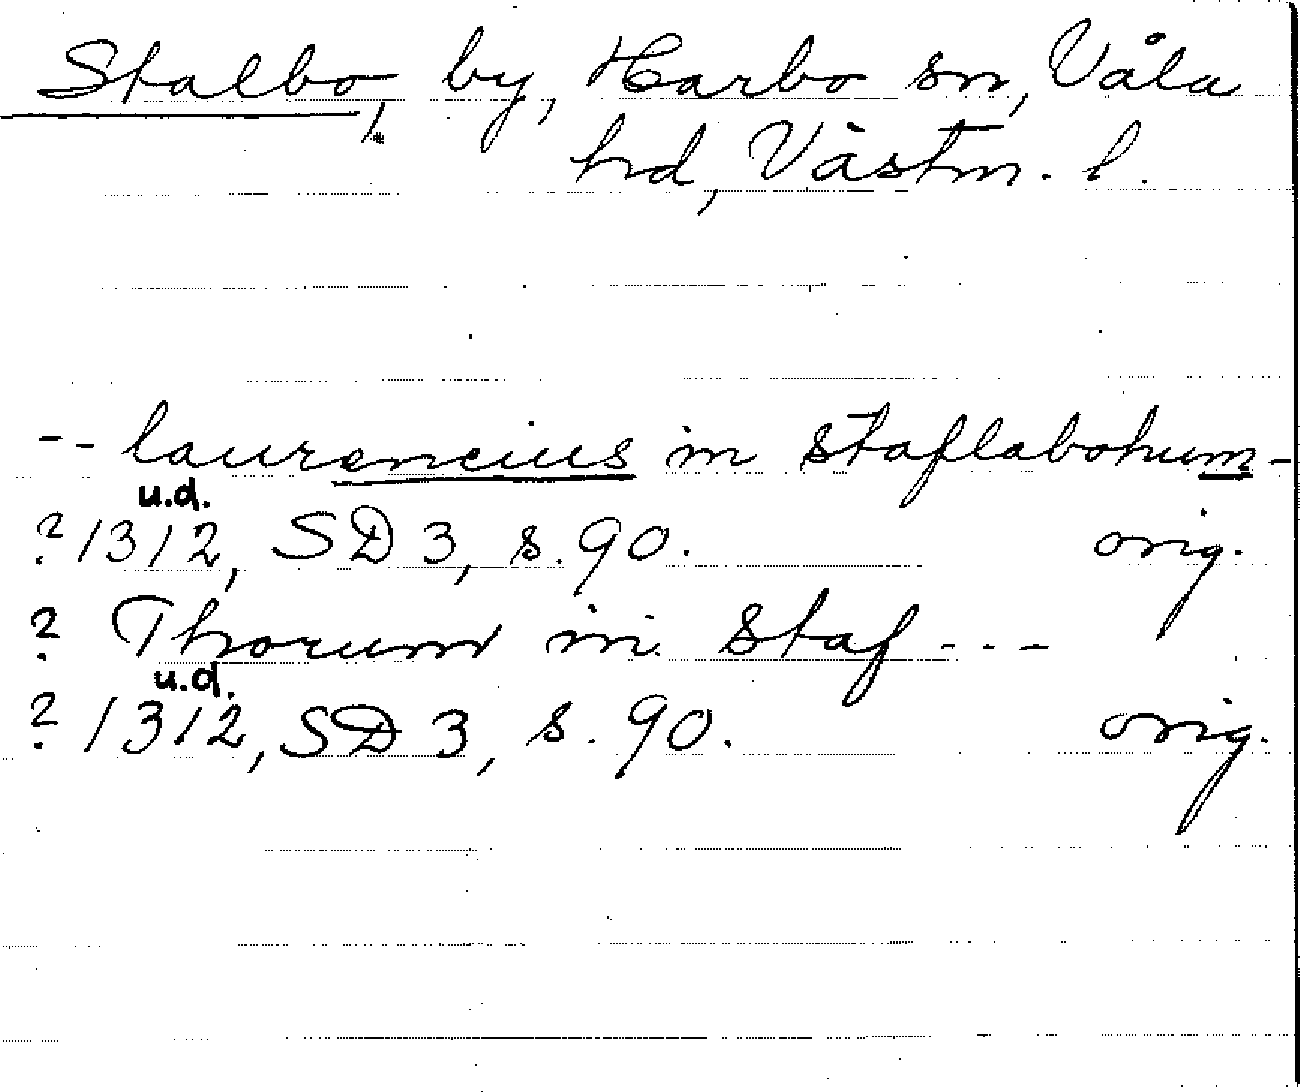 Stalbo, by, Harbo sn, Våla
1.
hrd, Västm. l.
-- laurencius in staflabohum -
u.d.
? 1312, SD 3, s. 90. orig.
? Thorum in staf ---
u.d.
? 1312, SD 3, s. 90. orig.